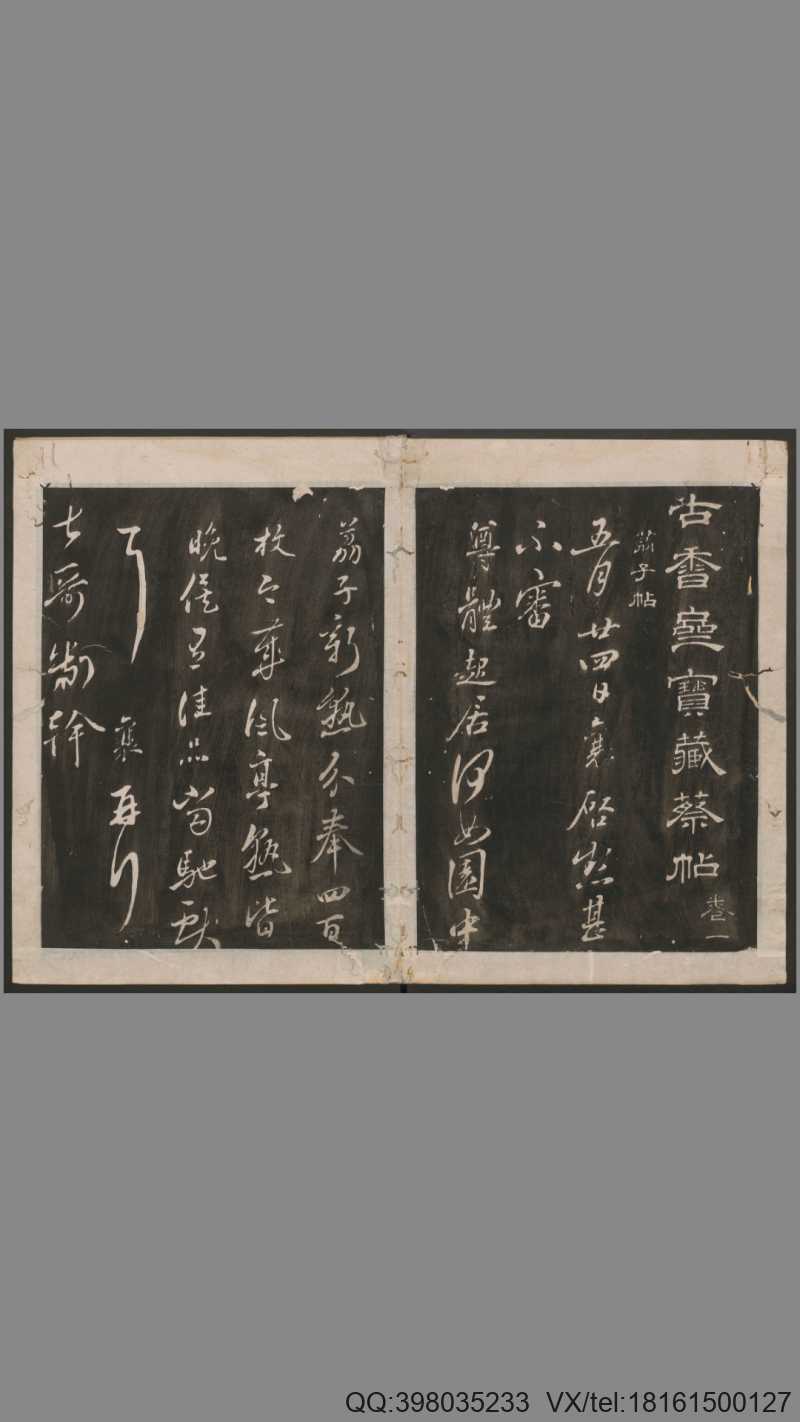 古香齋寶藏蔡帖 卷一
荔子帖
五月廿四日襄啓熱甚
不審
尊體起居何如園中
荔子新熟分奉四百
枚今歲風亭熟皆
晚俟有佳品當馳獻
耳 襄 再拜
哥 幹
QQ:398035233 VX/tel:18161500127